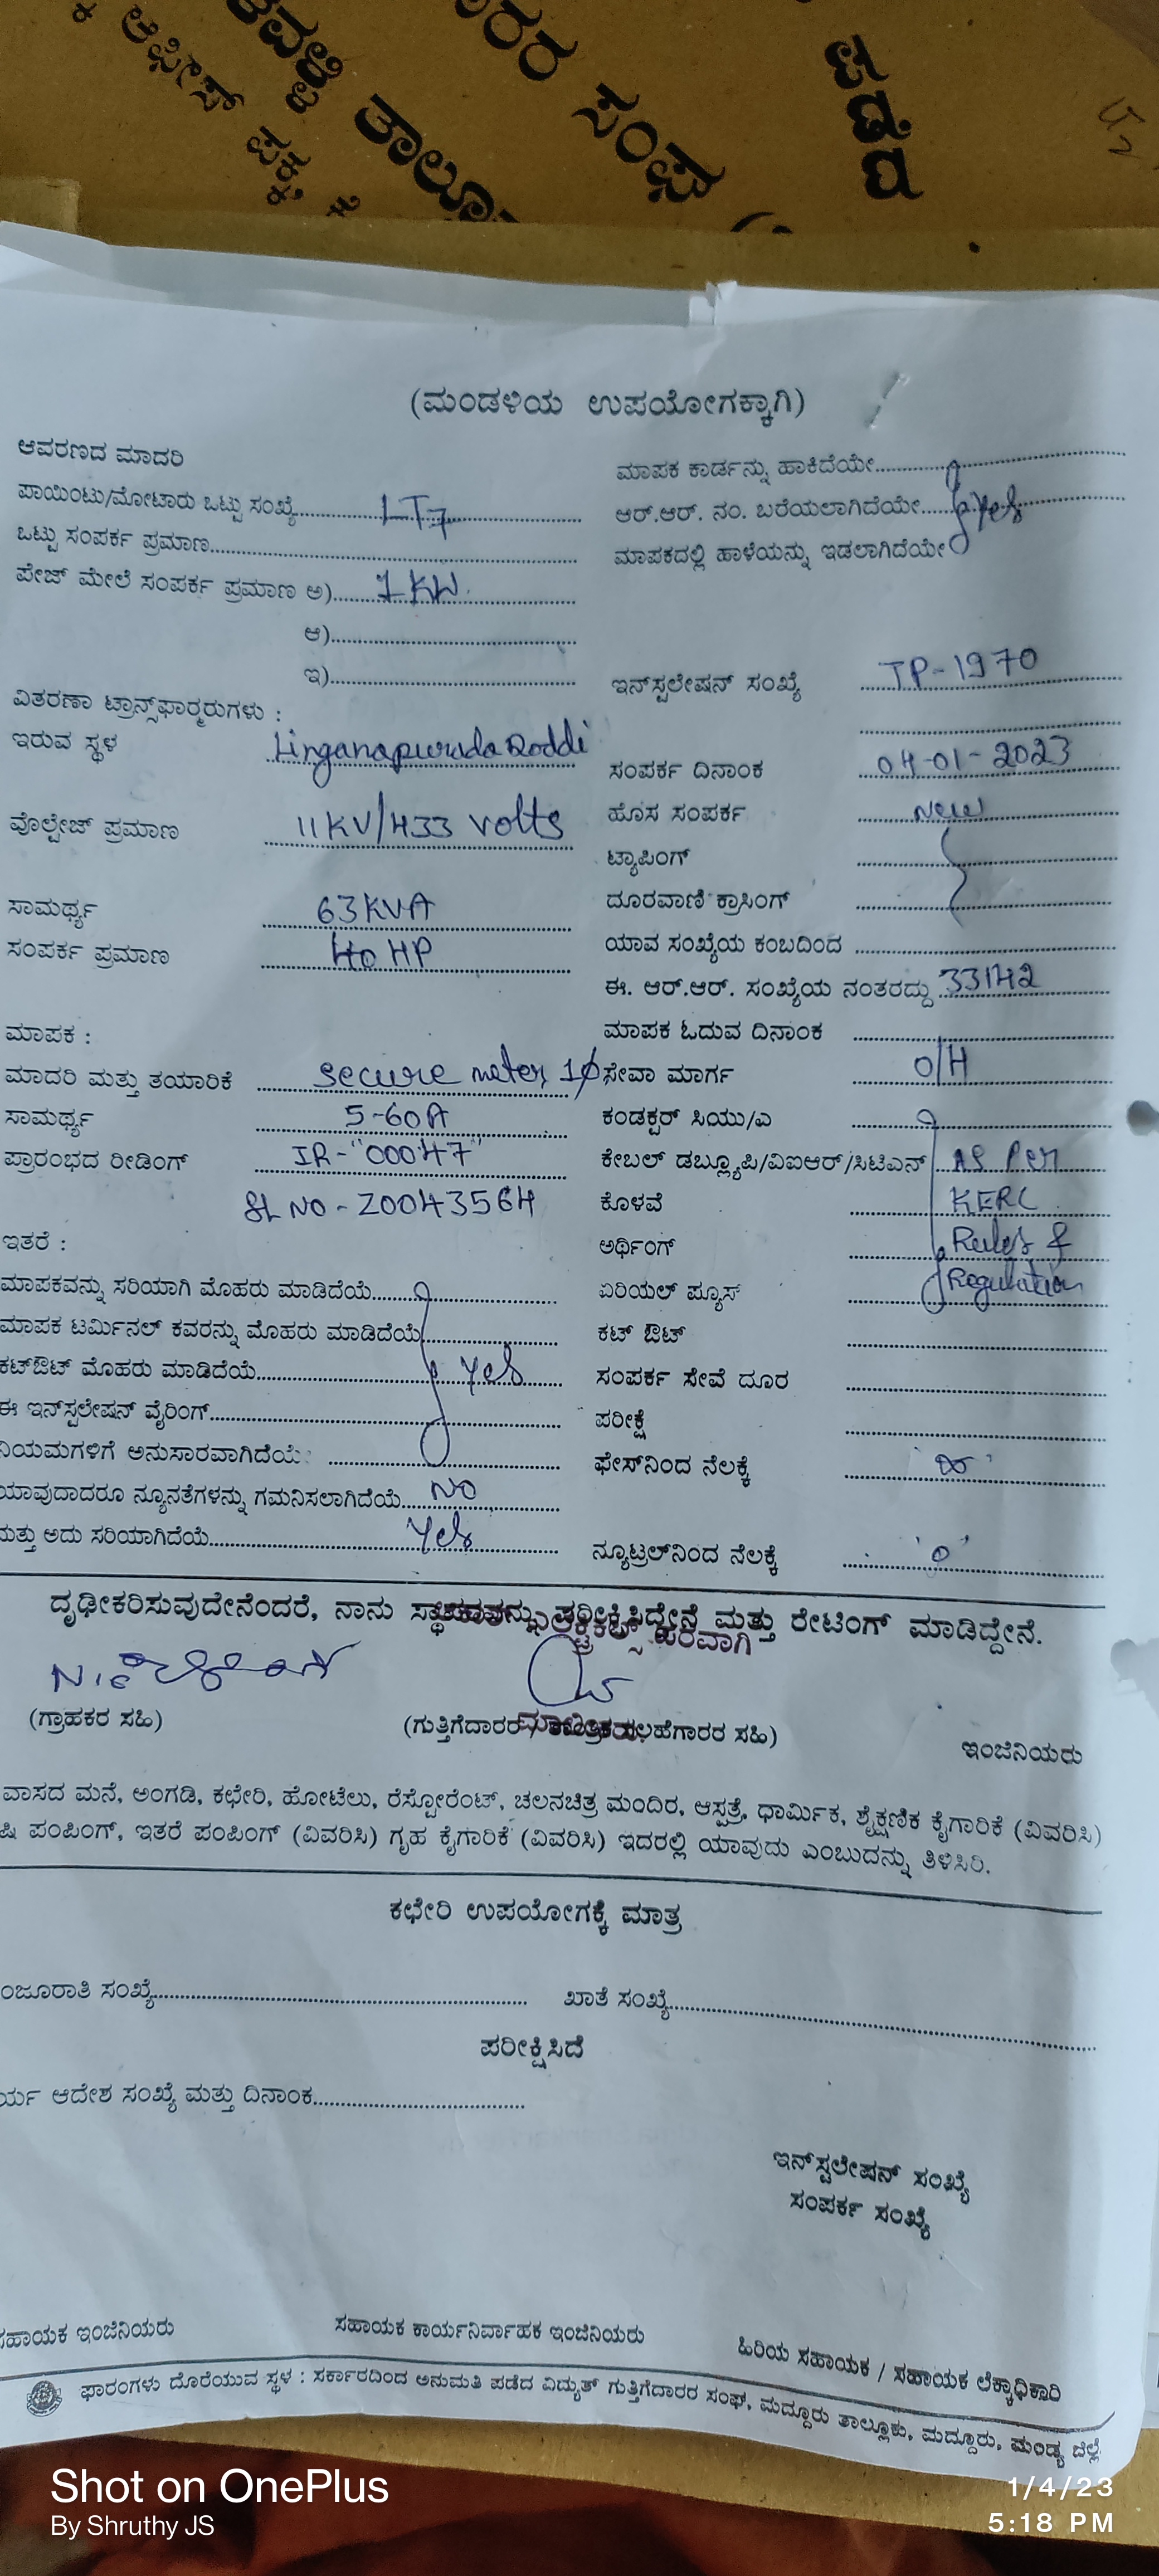 ಆಫೀಸ್ ಪಕ್ಕ
ತಾಲ್ಲೂ
ಸಂಘ
(ಮಂಡಳಿಯ ಉಪಯೋಗಕ್ಕಾಗಿ)
ಆವರಣದ ಮಾದರಿ
ಪಾಯಿಂಟು/ಮೋಟಾರು ಒಟ್ಟು ಸಂಖ್ಯೆ LT7
ಒಟ್ಟು ಸಂಪರ್ಕ ಪ್ರಮಾಣ
ಪೇಜ್ ಮೇಲೆ ಸಂಪರ್ಕ ಪ್ರಮಾಣ ಅ) 1KW
ಆ)
ಇ)
ವಿತರಣಾ ಟ್ರಾನ್ಸ್‌ಫಾರ್‍ಮರುಗಳು :
ಇರುವ ಸ್ಥಳ LinganapuradaDoddi
ವೊಲ್ಟೇಜ್ ಪ್ರಮಾಣ 11KV/433 volts
ಸಾಮರ್ಥ್ಯ 63KVA
ಸಂಪರ್ಕ ಪ್ರಮಾಣ 40 HP
ಮಾಪಕ :
ಮಾದರಿ ಮತ್ತು ತಯಾರಿಕೆ secure meter 1ϕ
ಸಾಮರ್ಥ್ಯ 5-60A
ಪ್ರಾರಂಭದ ರೀಡಿಂಗ್ IR-"00047"
SL NO - Z0043564
ಇತರೆ :
ಮಾಪಕವನ್ನು ಸರಿಯಾಗಿ ಮೊಹರು ಮಾಡಿದೆಯೆ
ಮಾಪಕ ಟರ್ಮಿನಲ್ ಕವರನ್ನು ಮೊಹರು ಮಾಡಿದೆಯೆ
ಕಟ್‌ಔಟ್ ಮೊಹರು ಮಾಡಿದೆಯೆ yes
ಈ ಇನ್‌ಸ್ಟಲೇಷನ್ ವೈರಿಂಗ್
ನಿಯಮಗಳಿಗೆ ಅನುಸಾರವಾಗಿದೆಯೆ
ಯಾವುದಾದರೂ ನ್ಯೂನತೆಗಳನ್ನು ಗಮನಿಸಲಾಗಿದೆಯೆ NO
ಮತ್ತು ಅದು ಸರಿಯಾಗಿದೆಯೆ Yes
ಮಾಪಕ ಕಾರ್ಡನ್ನು ಹಾಕಿದೆಯೇ
ಆರ್.ಆರ್. ನಂ. ಬರೆಯಲಾಗಿದೆಯೇ Yes
ಮಾಪಕದಲ್ಲಿ ಹಾಳೆಯನ್ನು ಇಡಲಾಗಿದೆಯೇ
ಇನ್‌ಸ್ಟಲೇಷನ್ ಸಂಖ್ಯೆ TP-1970
ಸಂಪರ್ಕ ದಿನಾಂಕ 04-01-2023
ಹೊಸ ಸಂಪರ್ಕ New
ಟ್ಯಾಪಿಂಗ್
ದೂರವಾಣಿ ಕ್ರಾಸಿಂಗ್
ಯಾವ ಸಂಖ್ಯೆಯ ಕಂಬದಿಂದ
ಈ. ಆರ್.ಆರ್. ಸಂಖ್ಯೆಯ ನಂತರದ್ದು 33142
ಮಾಪಕ ಓದುವ ದಿನಾಂಕ
ಸೇವಾ ಮಾರ್ಗ O/H
ಕಂಡಕ್ಟರ್ ಸಿಯು/ಎ
ಕೇಬಲ್ ಡಬ್ಲ್ಯೂಪಿ/ವಿಐಆರ್/ಸಿಟಿಎನ್ AS Per
ಕೊಳವೆ KERC
ಅರ್ಥಿಂಗ್ Rules &
ಏರಿಯಲ್ ಪ್ಯೂಸ್ Regulation
ಕಟ್ ಔಟ್
ಸಂಪರ್ಕ ಸೇವೆ ದೂರ
ಪರೀಕ್ಷೆ
ಫೇಸ್‌ನಿಂದ ನೆಲಕ್ಕೆ ∞
ನ್ಯೂಟ್ರಲ್‌ನಿಂದ ನೆಲಕ್ಕೆ '0'
ದೃಢೀಕರಿಸುವುದೇನೆಂದರೆ, ನಾನು ಸ್ಥಾವರವನ್ನು ಪರೀಕ್ಷಿಸಿದ್ದೇನೆ ಮತ್ತು ರೇಟಿಂಗ್ ಮಾಡಿದ್ದೇನೆ.
ಪರವಾಗಿ
(ಗ್ರಾಹಕರ ಸಹಿ)
(ಗುತ್ತಿಗೆದಾರರ / ಸಲಹೆಗಾರರ ಸಹಿ)
ಇಂಜಿನಿಯರು
ವಾಸದ ಮನೆ, ಅಂಗಡಿ, ಕಛೇರಿ, ಹೋಟೆಲು, ರೆಸ್ಟೋರೆಂಟ್, ಚಲನಚಿತ್ರ ಮಂದಿರ, ಆಸ್ಪತ್ರೆ, ಧಾರ್ಮಿಕ, ಶೈಕ್ಷಣಿಕ ಕೈಗಾರಿಕೆ (ವಿವರಿಸಿ)
ಷಿ ಪಂಪಿಂಗ್, ಇತರೆ ಪಂಪಿಂಗ್ (ವಿವರಿಸಿ) ಗೃಹ ಕೈಗಾರಿಕೆ (ವಿವರಿಸಿ) ಇದರಲ್ಲಿ ಯಾವುದು ಎಂಬುದನ್ನು ತಿಳಿಸಿರಿ.
ಕಛೇರಿ ಉಪಯೋಗಕ್ಕೆ ಮಾತ್ರ
ಂಜೂರಾತಿ ಸಂಖ್ಯೆ ಖಾತೆ ಸಂಖ್ಯೆ
ಪರೀಕ್ಷಿಸಿದೆ
ರ್ಯ ಆದೇಶ ಸಂಖ್ಯೆ ಮತ್ತು ದಿನಾಂಕ
ಇನ್‌ಸ್ಟಲೇಷನ್ ಸಂಖ್ಯೆ
ಸಂಪರ್ಕ ಸಂಖ್ಯೆ
ಸಹಾಯಕ ಇಂಜಿನಿಯರು ಸಹಾಯಕ ಕಾರ್ಯನಿರ್ವಾಹಕ ಇಂಜಿನಿಯರು ಹಿರಿಯ ಸಹಾಯಕ / ಸಹಾಯಕ ಲೆಕ್ಕಾಧಿಕಾರಿ
ಫಾರಂಗಳು ದೊರೆಯುವ ಸ್ಥಳ : ಸರ್ಕಾರದಿಂದ ಅನುಮತಿ ಪಡೆದ ವಿದ್ಯುತ್ ಗುತ್ತಿಗೆದಾರರ ಸಂಘ, ಮದ್ದೂರು ತಾಲ್ಲೂಕು, ಮದ್ದೂರು, ಮಂಡ್ಯ ಜಿಲ್ಲೆ
Shot on OnePlus
By Shruthy JS
1/4/23
5:18 PM